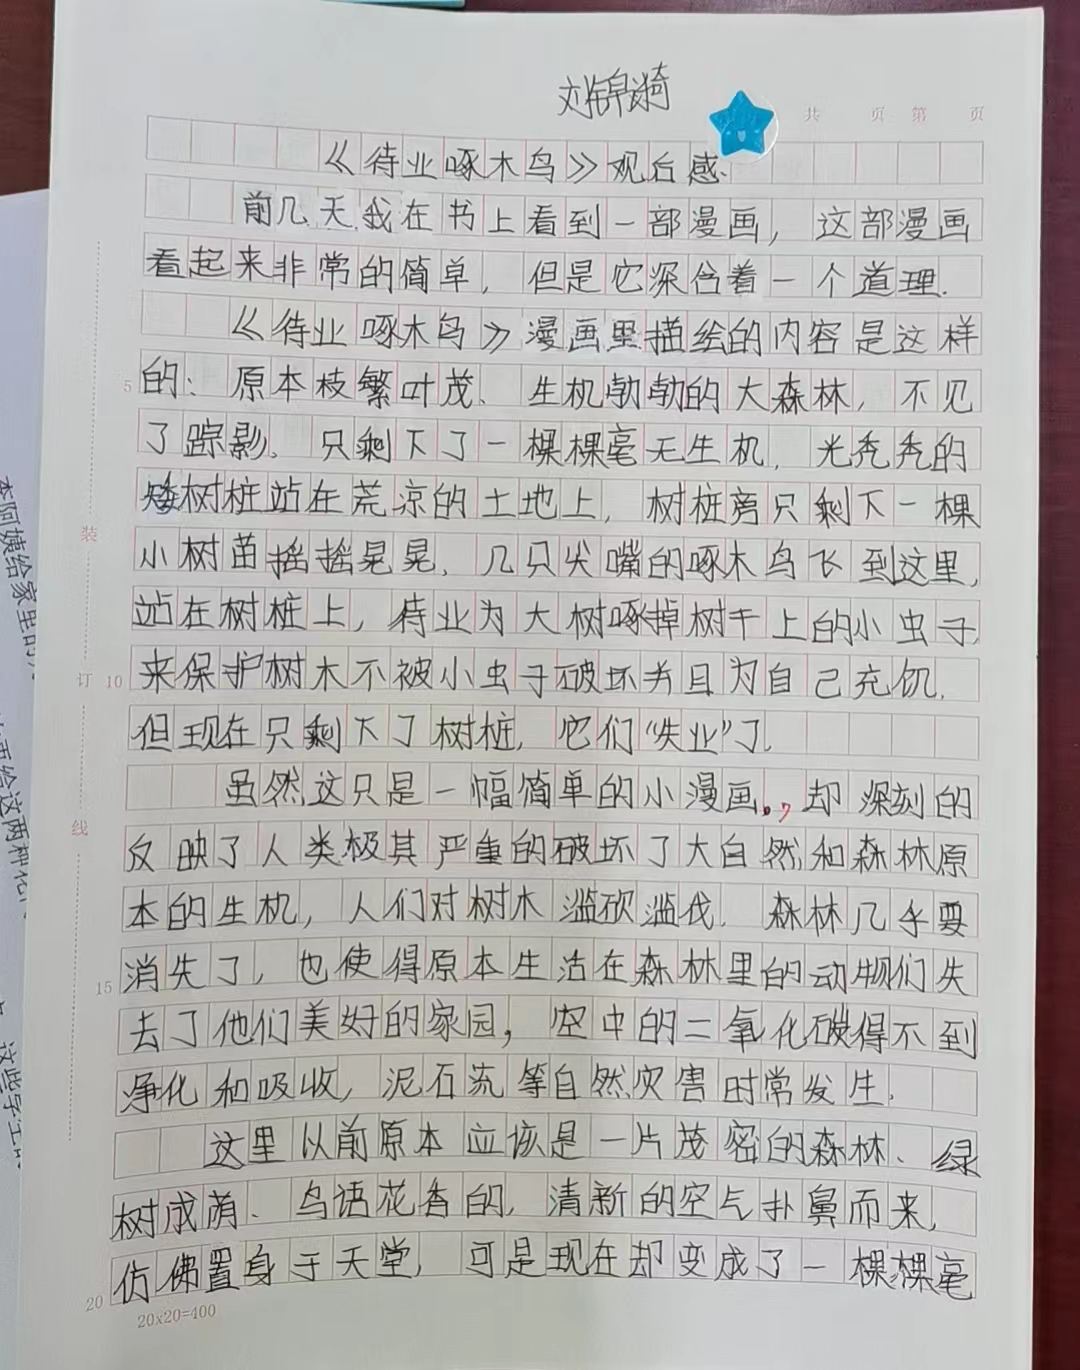 共 页 第 页
《待业啄木鸟》观后感.
前几天我在书上看到一部漫画，这部漫画
看起来非常的简单，但是它深含着一个道理.
《待业啄木鸟》漫画里描绘的内容是这样
5 的：原本枝繁叶茂、生机勃勃的大森林，不见
了踪影、只剩下了一棵棵毫无生机，光秃秃的
矮树桩站在荒凉的土地上，树桩旁只剩下一棵
小树苗摇摇晃晃，几只尖嘴的啄木鸟飞到这里，
装
站在树桩上，待业为大树啄掉树干上的小虫子，
订 10 来保护树木不被小虫子破坏并且为自己充饥.
但现在只剩下了树桩，它们“失业”了.
虽然这只是一幅简单的小漫画，却深刻的
线
反映了人类极其严重的破坏了大自然和森林原
本的生机，人们对树木滥砍滥伐.森林几乎要
15 消失了，也使得原本生活在森林里的动物们失
去了他们美好的家园，空中的二氧化碳得不到
净化和吸收，泥石流等自然灾害时常发生.
这里以前原本应该是一片茂密的森林、绿
树成荫、鸟语花香的，清新的空气扑鼻而来，
20 仿佛置身于天堂，可是现在却变成了一棵棵毫
20x20=400
本阿姨给家里的
给这两种花
这些字工